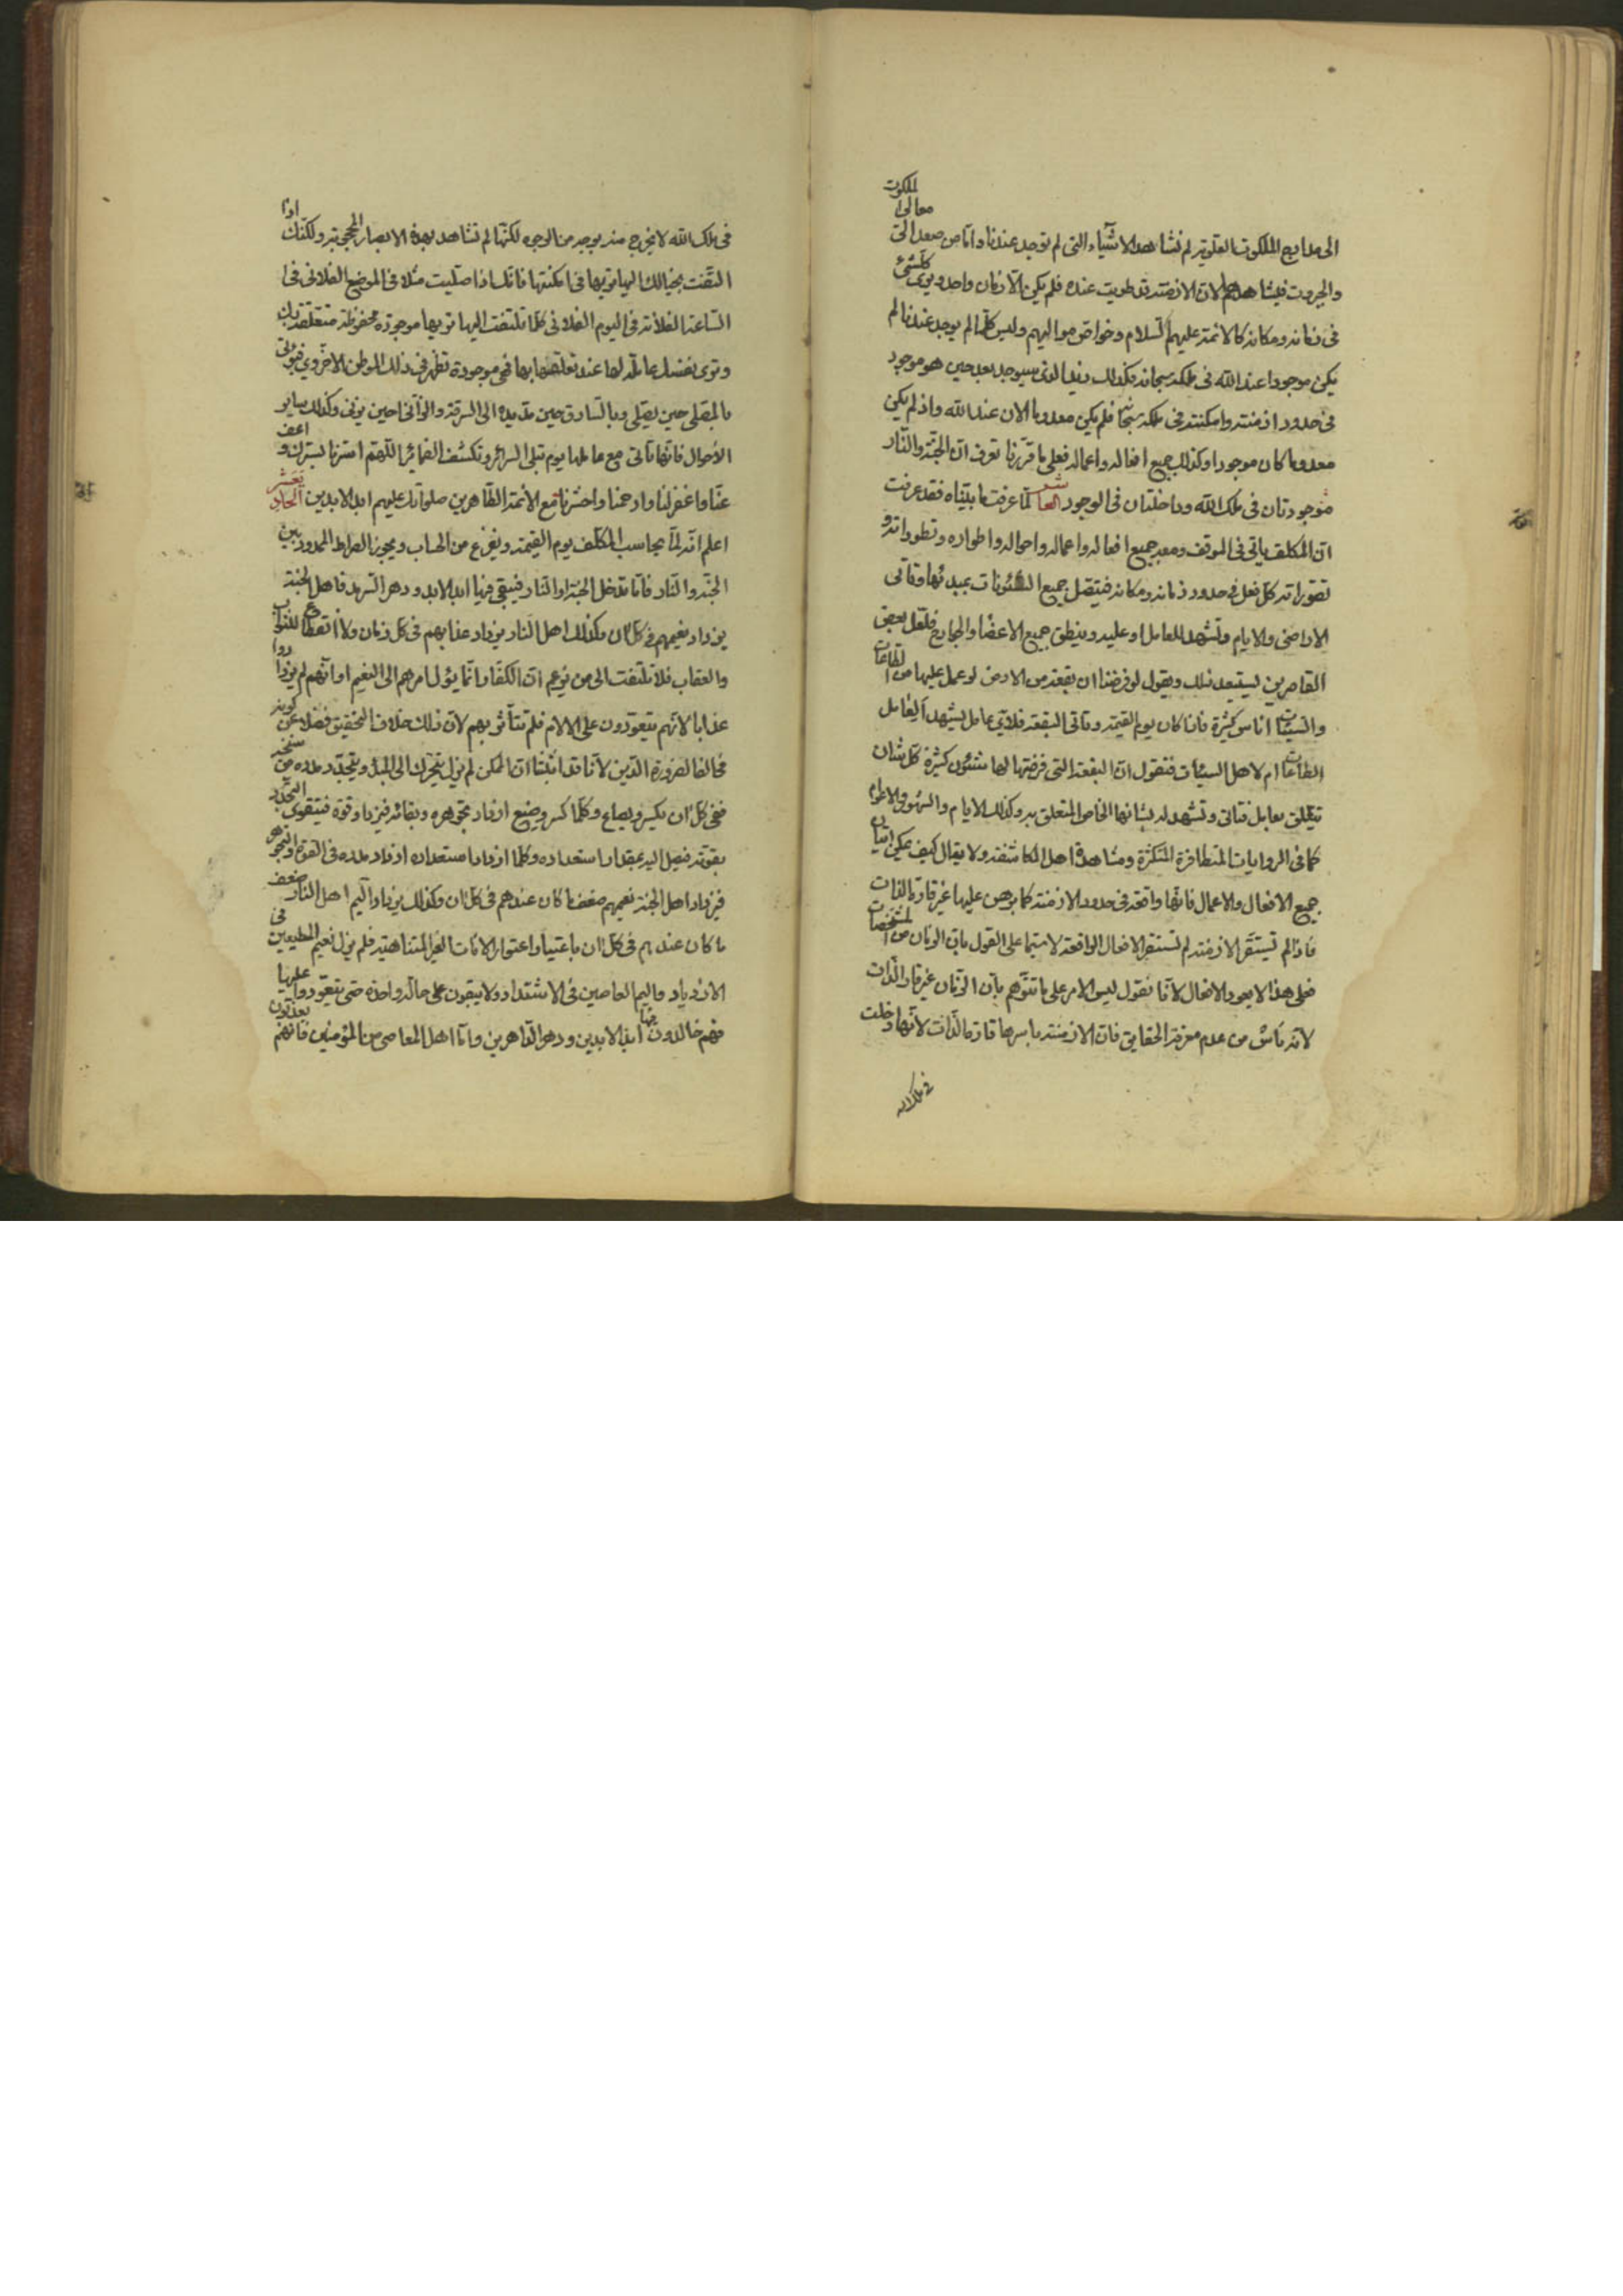 الى مدارج الملكوت العلوية لم نشاهد الاشياء التى لم توجد عندنا واما من صعد الى معالى الملكوت
والجبروت فيشاهدها لان الازمنة قد طويت عنده فلم يكن الا زمان واحد ويرى كلشئ
فى زمانه ومكانه كالائمة عليهم السلام وخواص مواليهم وليس كلما لم يوجد عندنا لم
يكن موجودا عند الله فى ملكه سبحانه وكذلك زيد الذى سيوجد بعد حين هو موجود
فى حدود ازمنته وامكنته فى ملكه سبحانه فلم يكن معدوما الان عند الله واذ لم يكن
معدوما كان موجودا وكذلك جميع افعاله واعماله فعلى ما قررنا تعرف ان الجنة والنار
موجودتان فى ملك الله وداخلتان فى الوجود التاسع لما عرفت ما بيناه فقد عرفت
ان المكلف ياتى فى الموقف ومعه جميع افعاله واعماله واحواله واطواره وتطوراته و
تصوراته كل فعل فى حدود زمانه ومكانه فيتصل جميع الشئونات بمبدئها وتاتى
الاراضى والايام وتشهد للعامل او عليه وينطق جميع الاعضاء والجوارح فلعل بعض
القاصرين يستبعد ذلك ويقول لو فرضنا ان بقعة من الارض لو عمل عليها من الطاعات
والسيئات اناس كثيرة فاذا كان يوم القيمة وتاتى البقعة فلاى عامل يشهد العامل
الطاعات ام لاهل السيئات فنقول ان البقعة التى فرضتها لها شئون كثيرة كل شان
يتعلق بعامل فتاتى وتشهد له بشانها الخاص المتعلق به وكذلك الايام والشهور والاعوام
كما فى الروايات المتظافرة المتكثرة ومشاهدة اهل المكاشفة ولا يقال كيف يمكن اتيان
جميع الافعال والاعمال فانها واقعة فى حدود الازمنة كما برهن عليها غير قارة بالذات
فاذا لم تستقر الازمنة لم تستقر الافعال الواقعة لا سيما على القول بان الزمان من المشخصات
فعلى هذا لا يعود الافعال لانا نقول ليس الامر على ما تتوهم بان الزمان غير قار الذات
لانه ناش من عدم معرفة الحقايق فان الازمنة باسرها قارة بالذات لانها دخلت
فى ملك الله
فى ملك الله لا يخرج منه بوجه من الوجوه لكنها لم نشاهد بهذه الابصار المحجوبة ولكنك اذا
التفت بخيالك اليها تريها فى امكنتها فانك اذا صليت مثلا فى الموضع الفلانى فى
الساعة الفلانة فى اليوم الفلانى كلما تلتفت اليها تريها موجودة محفوظة متعلقة بك
وترى نفسك عاملة لها عند تعلقها بها فهى موجودة تظهر فى ذلك الموطن الاخروى فيؤتى
بالمصلى حين يصلى وبالسارق حين مد يده الى السرقة والزانى حين يزنى وكذلك ساير
الاحوال فانها تاتى مع عاملها يوم تبلى السرائر وتكشف الضمائر اللهم استرنا بسترك واعف
عنا واغفر لنا وارحمنا واحشرنا مع الائمة الطاهرين صلواتك عليهم ابد الابدين الحادى عشر
اعلم انه لما يحاسب المكلف يوم القيمة ويفرغ من الحساب ويجوز الصراط الممدود بين
الجنة والنار فاما يدخل الجنة او النار فيبقى فيها ابد الابد ودهر السرمد فاهل الجنة
يزداد نعيمهم فى كل ان وكذلك اهل النار يزداد عذابهم فى كل زمان ولا انقطاع للثواب
والعقاب فلا تلتفت الى من توهم ان الكفار انما يؤل امرهم الى النعيم او انهم لم يزدادوا
عذابا لانهم يتعودون على الالام فلم تتأثر بهم لان ذلك خلاف التحقيق فضلا عن كونه
مخالفا لضرورة الدين لانا قد اثبتنا ان الممكن لم يزل يتحرك الى المبدأ ويتجدد مدده من
ففى كل ان يكسر ويصاغ وكلما كسر وصيغ ازداد تجوهره وبقائه فيزداد قوة فيتقوى
بقوته فيصل اليه بمقدار استعداده وكلما ازداد استعداده ازداد مدده فى القوة والتجوهر
فيزداد اهل الجنة نعيمهم ضعف ما كان عندهم فى كل ان وكذلك يزداد اليم اهل النار ضعف
ما كان عندهم فى كل ان باعتبار اعتوار الانات الغير المتناهية فلم يزل نعيم المطيعين فى
الازدياد واليم العاصين فى الاشتداد ولا يبقون على حالة واحدة حتى يتعودوا عليها
فهم خالدون فيها ابد الابدين ودهر الداهرين واما اهل المعاصى من المؤمنين فانهم يعذبون